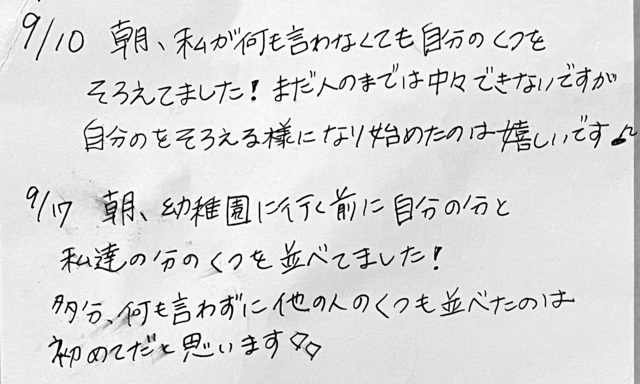 9/10 朝、私が何も言わなくても自分のくつを
そろえてました！まだ人のまでは中々できないですが
自分のをそろえる様になり始めたのは嬉しいです♪
9/17 朝、幼稚園に行く前に自分の分と
私達の分のくつを並べてました！
多分、何も言わずに他の人のくつも並べたのは
初めてだと思います◇◇